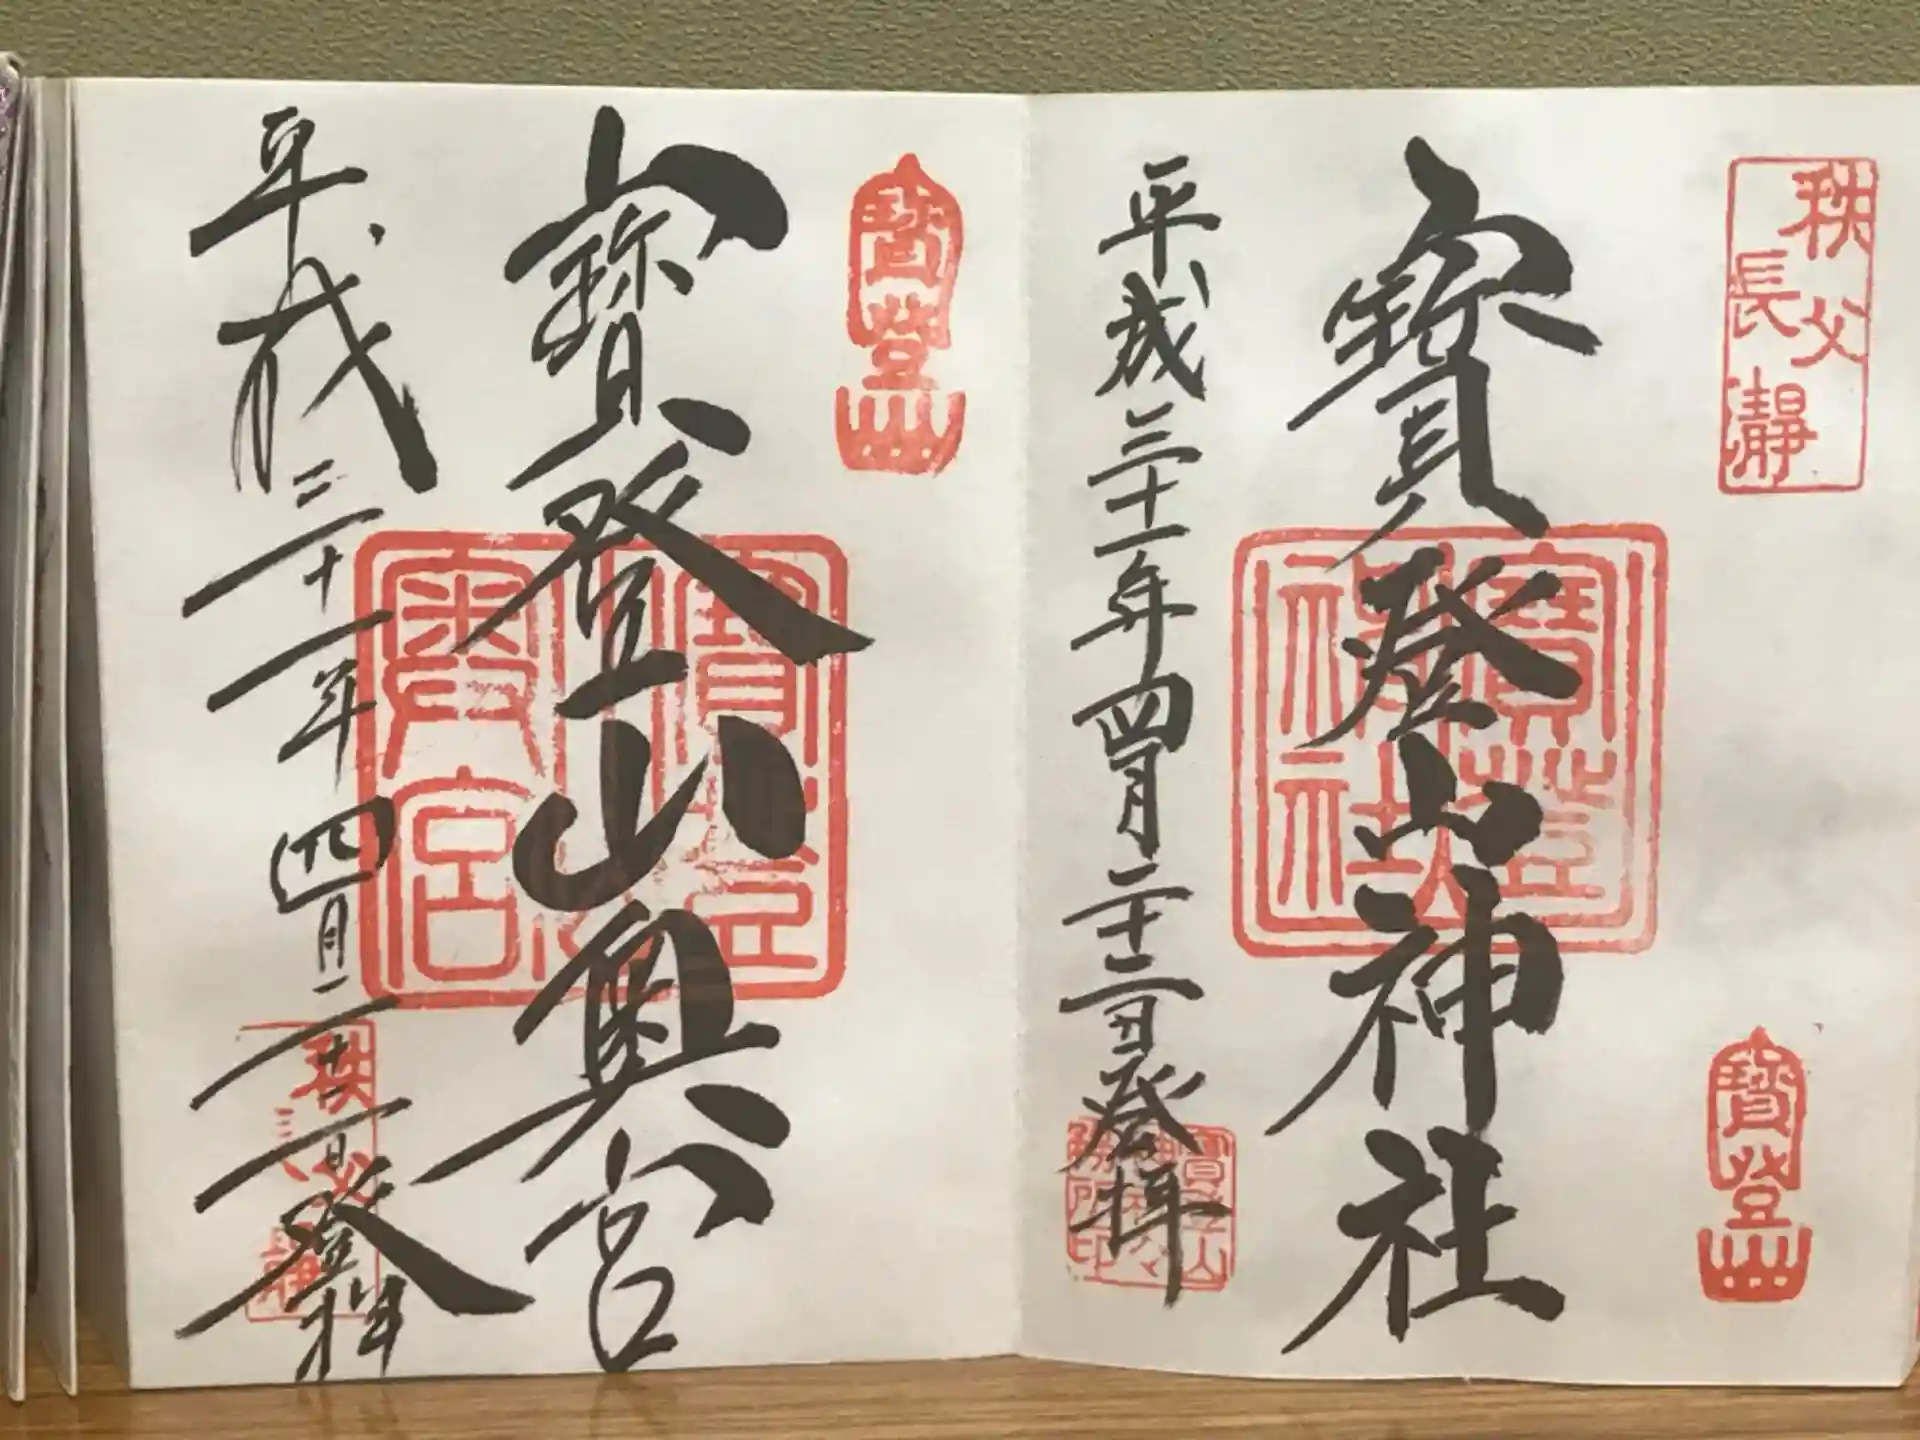 秩父
長瀞
寶登山神社
寶登山
寶登
神社
平成三十一年四月二十二日登拝
寶登山
寶登山奥宮
奥宮
平成三十一年四月二十二日登拝
秩父